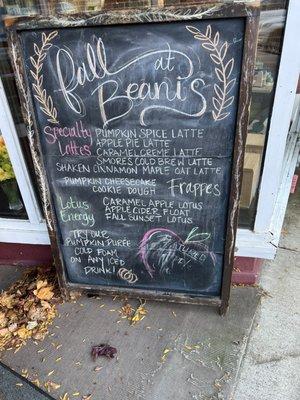 Fall at
Beans
Specialty
Lattes
PUMPKIN SPICE LATTE
APPLE PIE LATTE
CARAMEL CREME LATTE
SMORES COLD BREW LATTE
SHAKEN CINNAMON MAPLE OAT LATTE
PUMPKIN CHEESECAKE
COOKIE DOUGH
Frappes
Lotus
Energy
CARAMEL APPLE LOTUS
APPLE CIDER FLOAT
FALL SUNSET LOTUS
TRY OUR
PUMPKIN PURÉE
COLD FOAM
ON ANY ICED
DRINK!